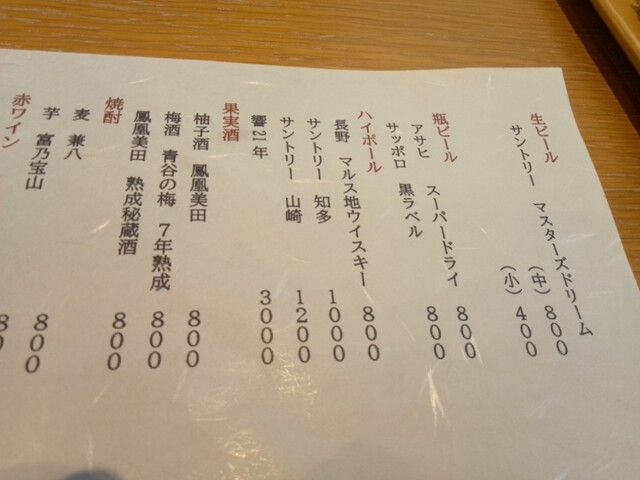 生ビール
サントリー マスターズドリーム
(中) 800
(小) 400
瓶ビール
アサヒ スーパードライ 800
サッポロ 黒ラベル 800
ハイボール
長野 マルス地ウイスキー 800
サントリー 知多 1000
サントリー 山崎 1200
響21年 3000
果実酒
柚子酒 鳳凰美田 800
梅酒 青谷の梅 7年熟成 800
鳳凰美田 熟成秘蔵酒 800
焼酎
麦 兼八
芋 富乃宝山 800
赤ワイン